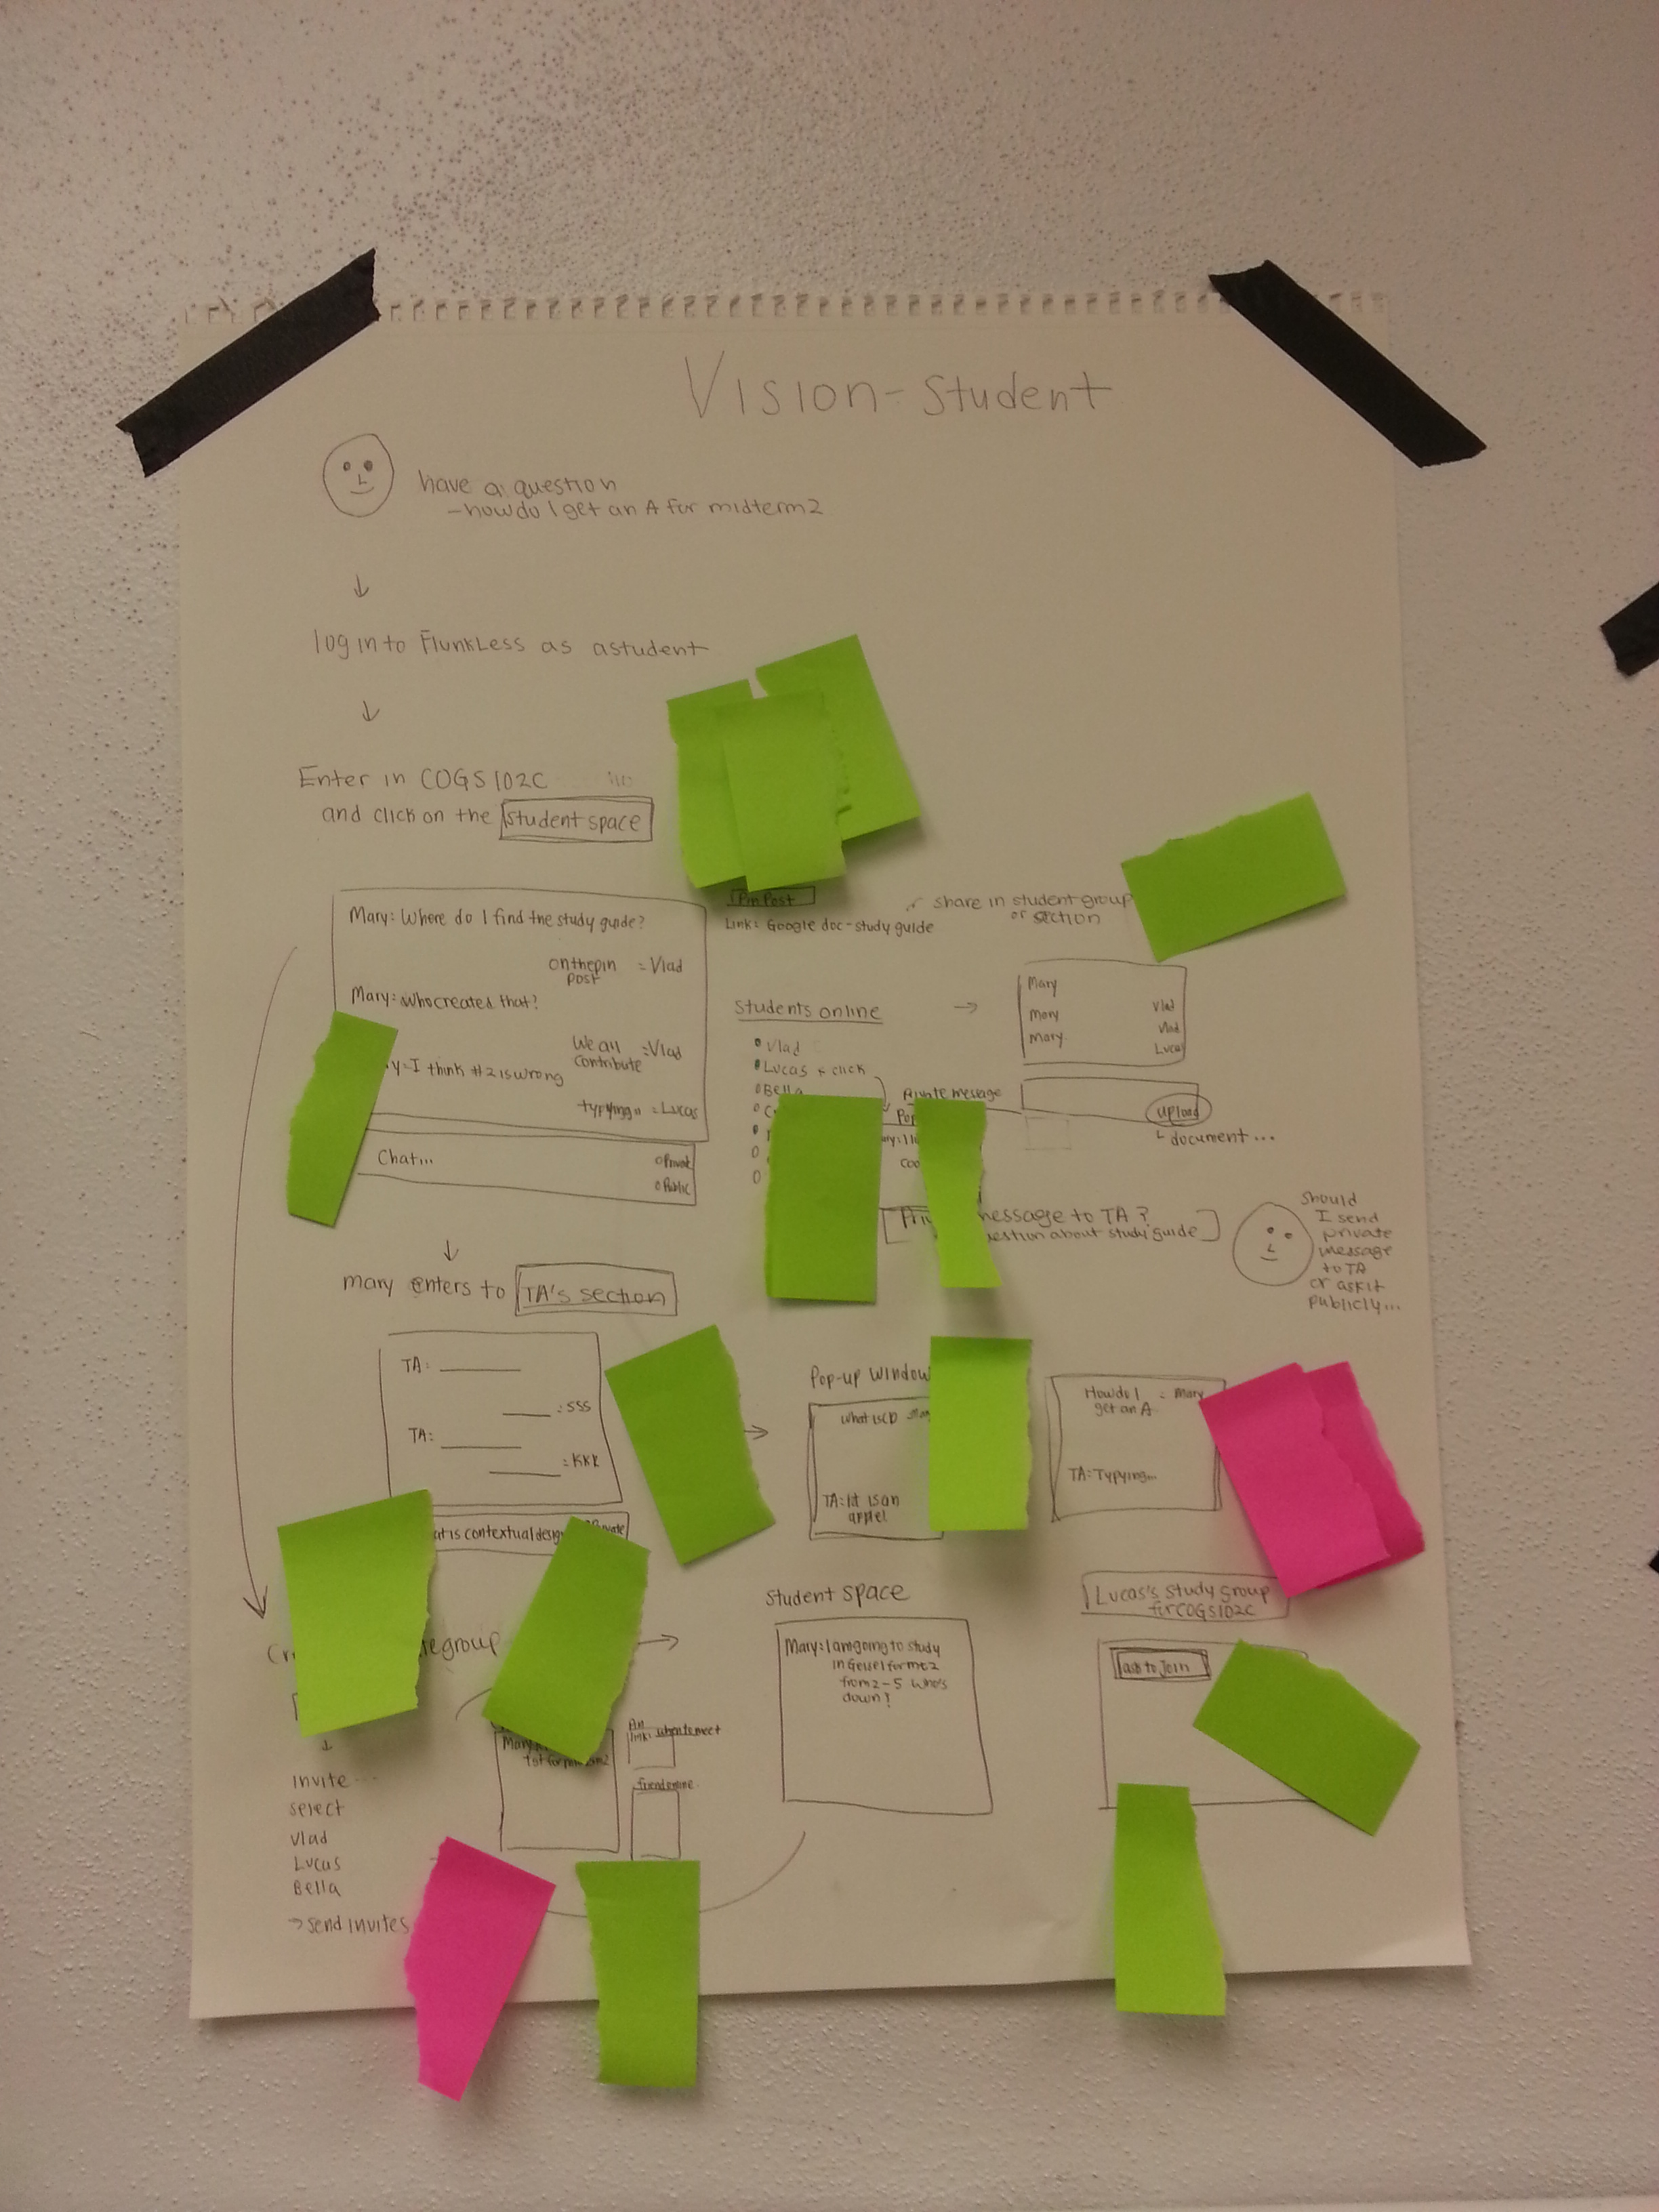 Vision-Student
have a question
- how do I get an A for midterm 2
↓
log in to FlunkLess as a student
↓
Enter in COGS102C
and click on the student space
Mary: Where do I find the study guide?
on the pin = Vlad
post
Mary: who created that?
We all = Vlad
contribute
y = I think #2 is wrong
typying = Lucas
Chat...
o Private
o Public
Pin Post
Link: Google doc - study guide
share in student group
or section
Students online
→
Vlad
Lucas click
Bella
Private message
Mary
Vlad
Mary
Vlad
Mary
Lucas
upload
document...
message to TA?
about study guide
Should
I send
private
message
to TA
or ask it
publicly...
↓
Mary enters to TA's section
TA:
: SSS
TA:
= KKK
at is contextual desig
→
Pop-up window
What is CD
TA: It is an
How do I = Mary
get an A
TA: Typying...
egroup
→
↓
invite
select
Vlad
Lucas
Bella
→ send invites
Mary
1st for
link: when to meet
Student space
Mary: I am going to study
in Geisel for mt2
from 2-5 who's
down?
Lucas's study group
for COGS102C
ask to join